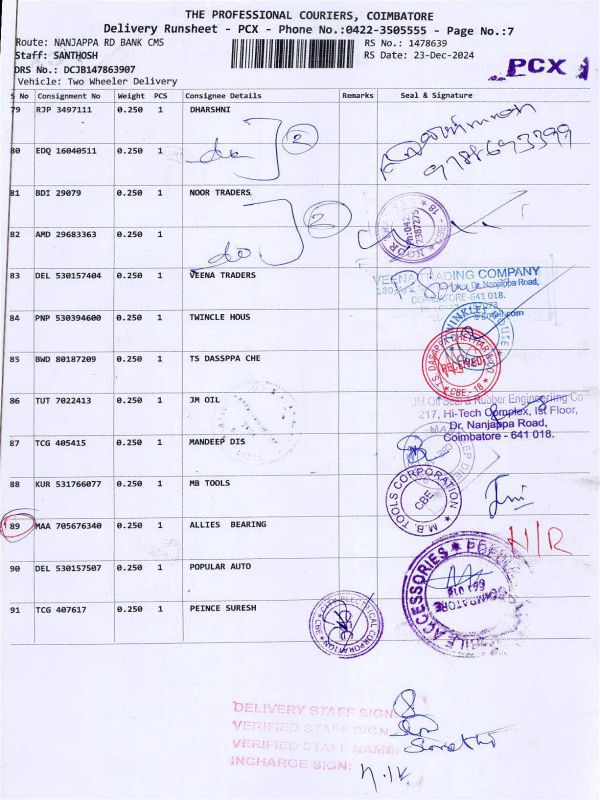 THE PROFESSIONAL COURIERS, COIMBATORE
Delivery Runsheet - PCX - Phone No.:0422-3505555 - Page No.:7
Route: NANJAPPA RD BANK CMS RS No.: 1478639
Staff: SANTHOSH RS Date: 23-Dec-2024
DRS No.: DCJB147863907 PCX
Vehicle: Two Wheeler Delivery
S No Consignment No Weight PCS Consignee Details Remarks Seal & Signature
79 RJP 3497111 0.250 1 DHARSHNI
2
80 EDQ 16040511 0.250 1 do
81 BDI 29079 0.250 1 NOOR TRADERS
2
82 AMD 29683363 0.250 1 do
83 DEL 530157404 0.250 1 VEENA TRADERS
VEENA TRADING COMPANY
Dr. Nanjappa Road,
COIMBATORE-641 018.
84 PNP 530394600 0.250 1 TWINCLE HOUS
85 BWD 80187209 0.250 1 TS DASSPPA CHE
86 TUT 7022413 0.250 1 JM OIL
JM Oil Seal & Rubber Engineering Co
217, Hi-Tech Complex, Ist Floor,
Dr. Nanjappa Road,
Coimbatore - 641 018.
87 TCG 405415 0.250 1 MANDEEP DIS
88 KUR 531766077 0.250 1 MB TOOLS
M.B. TOOLS CORPORATION
CBE
89 MAA 705676340 0.250 1 ALLIES BEARING
N/R
90 DEL 530157507 0.250 1 POPULAR AUTO
91 TCG 407617 0.250 1 PEINCE SURESH
DELIVERY STAFF SIGN
VERIFIED STAFF SIGN
VERIFIED STAFF NAME:
INCHARGE SIGN: